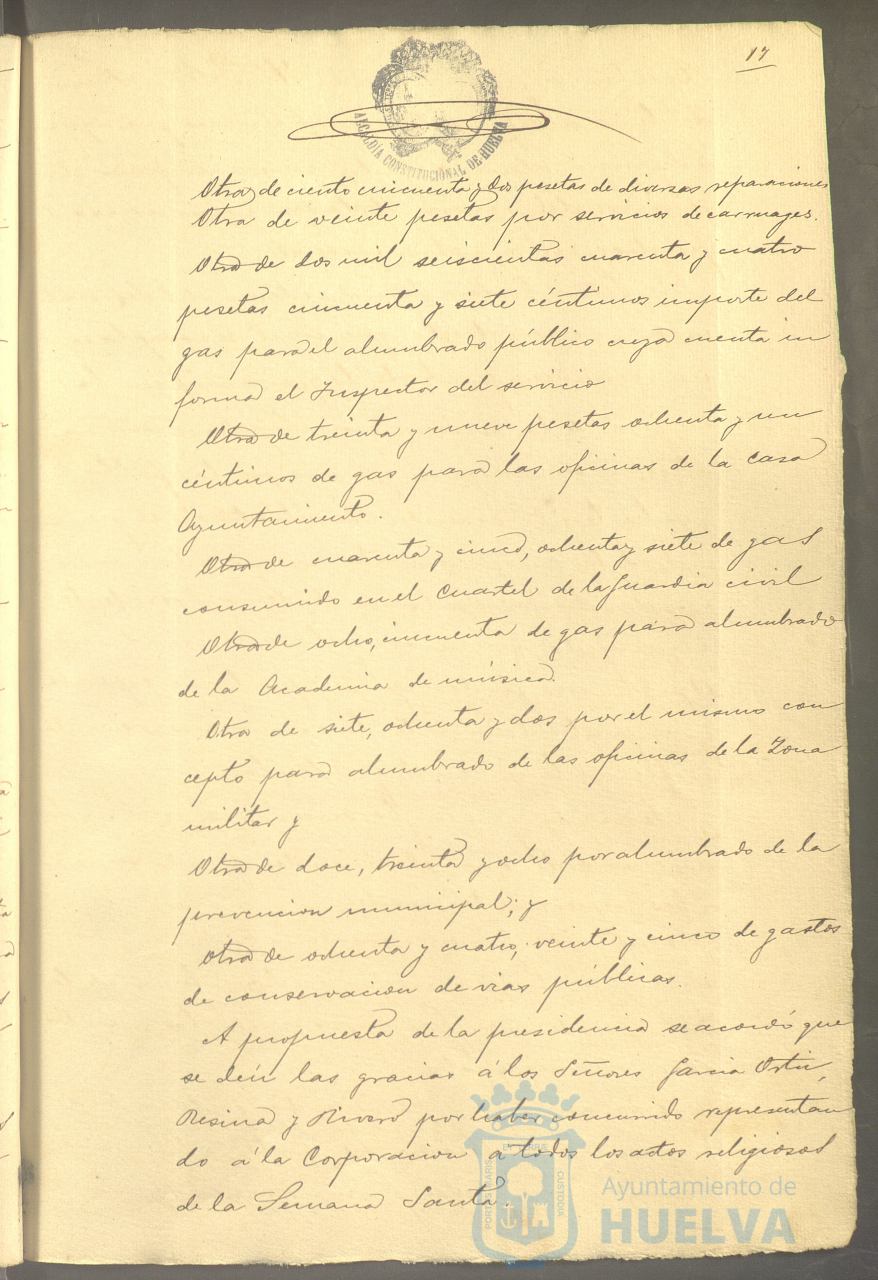 17
ALCALDIA CONSTITUCIONAL DE HUELVA
Otra de ciento cincuenta y dos pesetas de diversas reparaciones
Otra de veinte pesetas por servicios de carruages.
Otra de dos mil seiscientas cuarenta y cuatro
pesetas cincuenta y siete céntimos importe del
gas para el alumbrado público cuya cuenta in
forma el Inspector del servicio
Otra de treinta y nueve pesetas ochenta y un
céntimos de gas para las oficinas de la Casa
Ayuntamiento.
Otra de cuarenta y cinco, ochenta y siete de gas
consumido en el Cuartel de la Guardia civil
Otra de ocho, cincuenta de gas para alumbrado
de la Academia de música.
Otra de siete, ochenta y dos por el mismo con
cepto para alumbrado de las oficinas de la Zona
militar y
Otra de doce, treinta y ocho por alumbrado de la
prevencion municipal; y
Otra de ochenta y cuatro, veinte y cinco de gastos
de conservacion de vias públicas.
A propuesta de la presidencia se acordó que
se dén las gracias á los Señores Garcia Ortiz,
Resina y Rivero por haber concurrido representan
do á la Corporacion a todos los actos religiosos
de la Semana Santa.
PORTUS MARIS
ET TERRAE
CUSTODIA
Ayuntamiento de
HUELVA